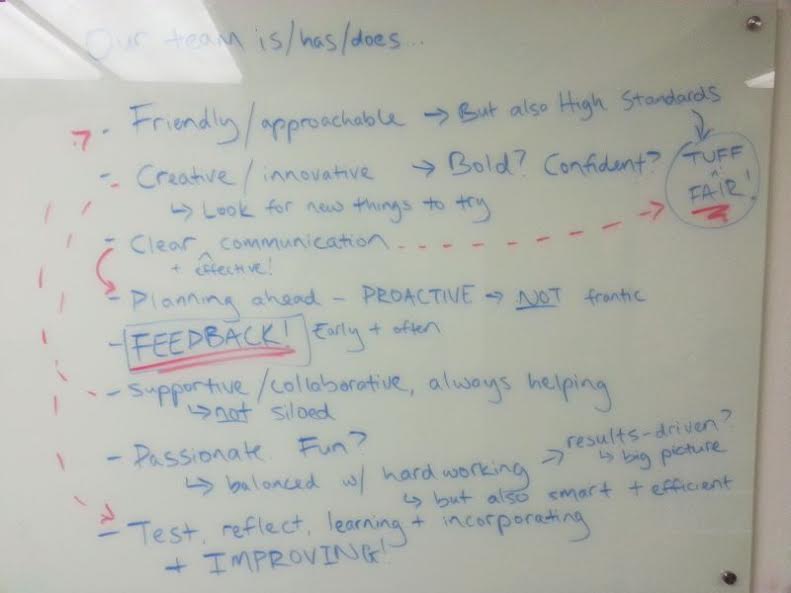 Our team is/has/does...
- Friendly/approachable → But also High Standards
TUFF
^
FAIR!
- Creative/innovative → Bold? Confident?
↳ Look for new things to try
- Clear ^ communication
+ effective!
- Planning ahead - PROACTIVE → NOT frantic
- FEEDBACK! Early + often
- supportive/collaborative, always helping
↳ not siloed
- Passionate. Fun?
↳ balanced w/ hardworking → results-driven?
↳ big picture
↳ but also smart + efficient
- Test, reflect, learning + incorporating
+ IMPROVING!